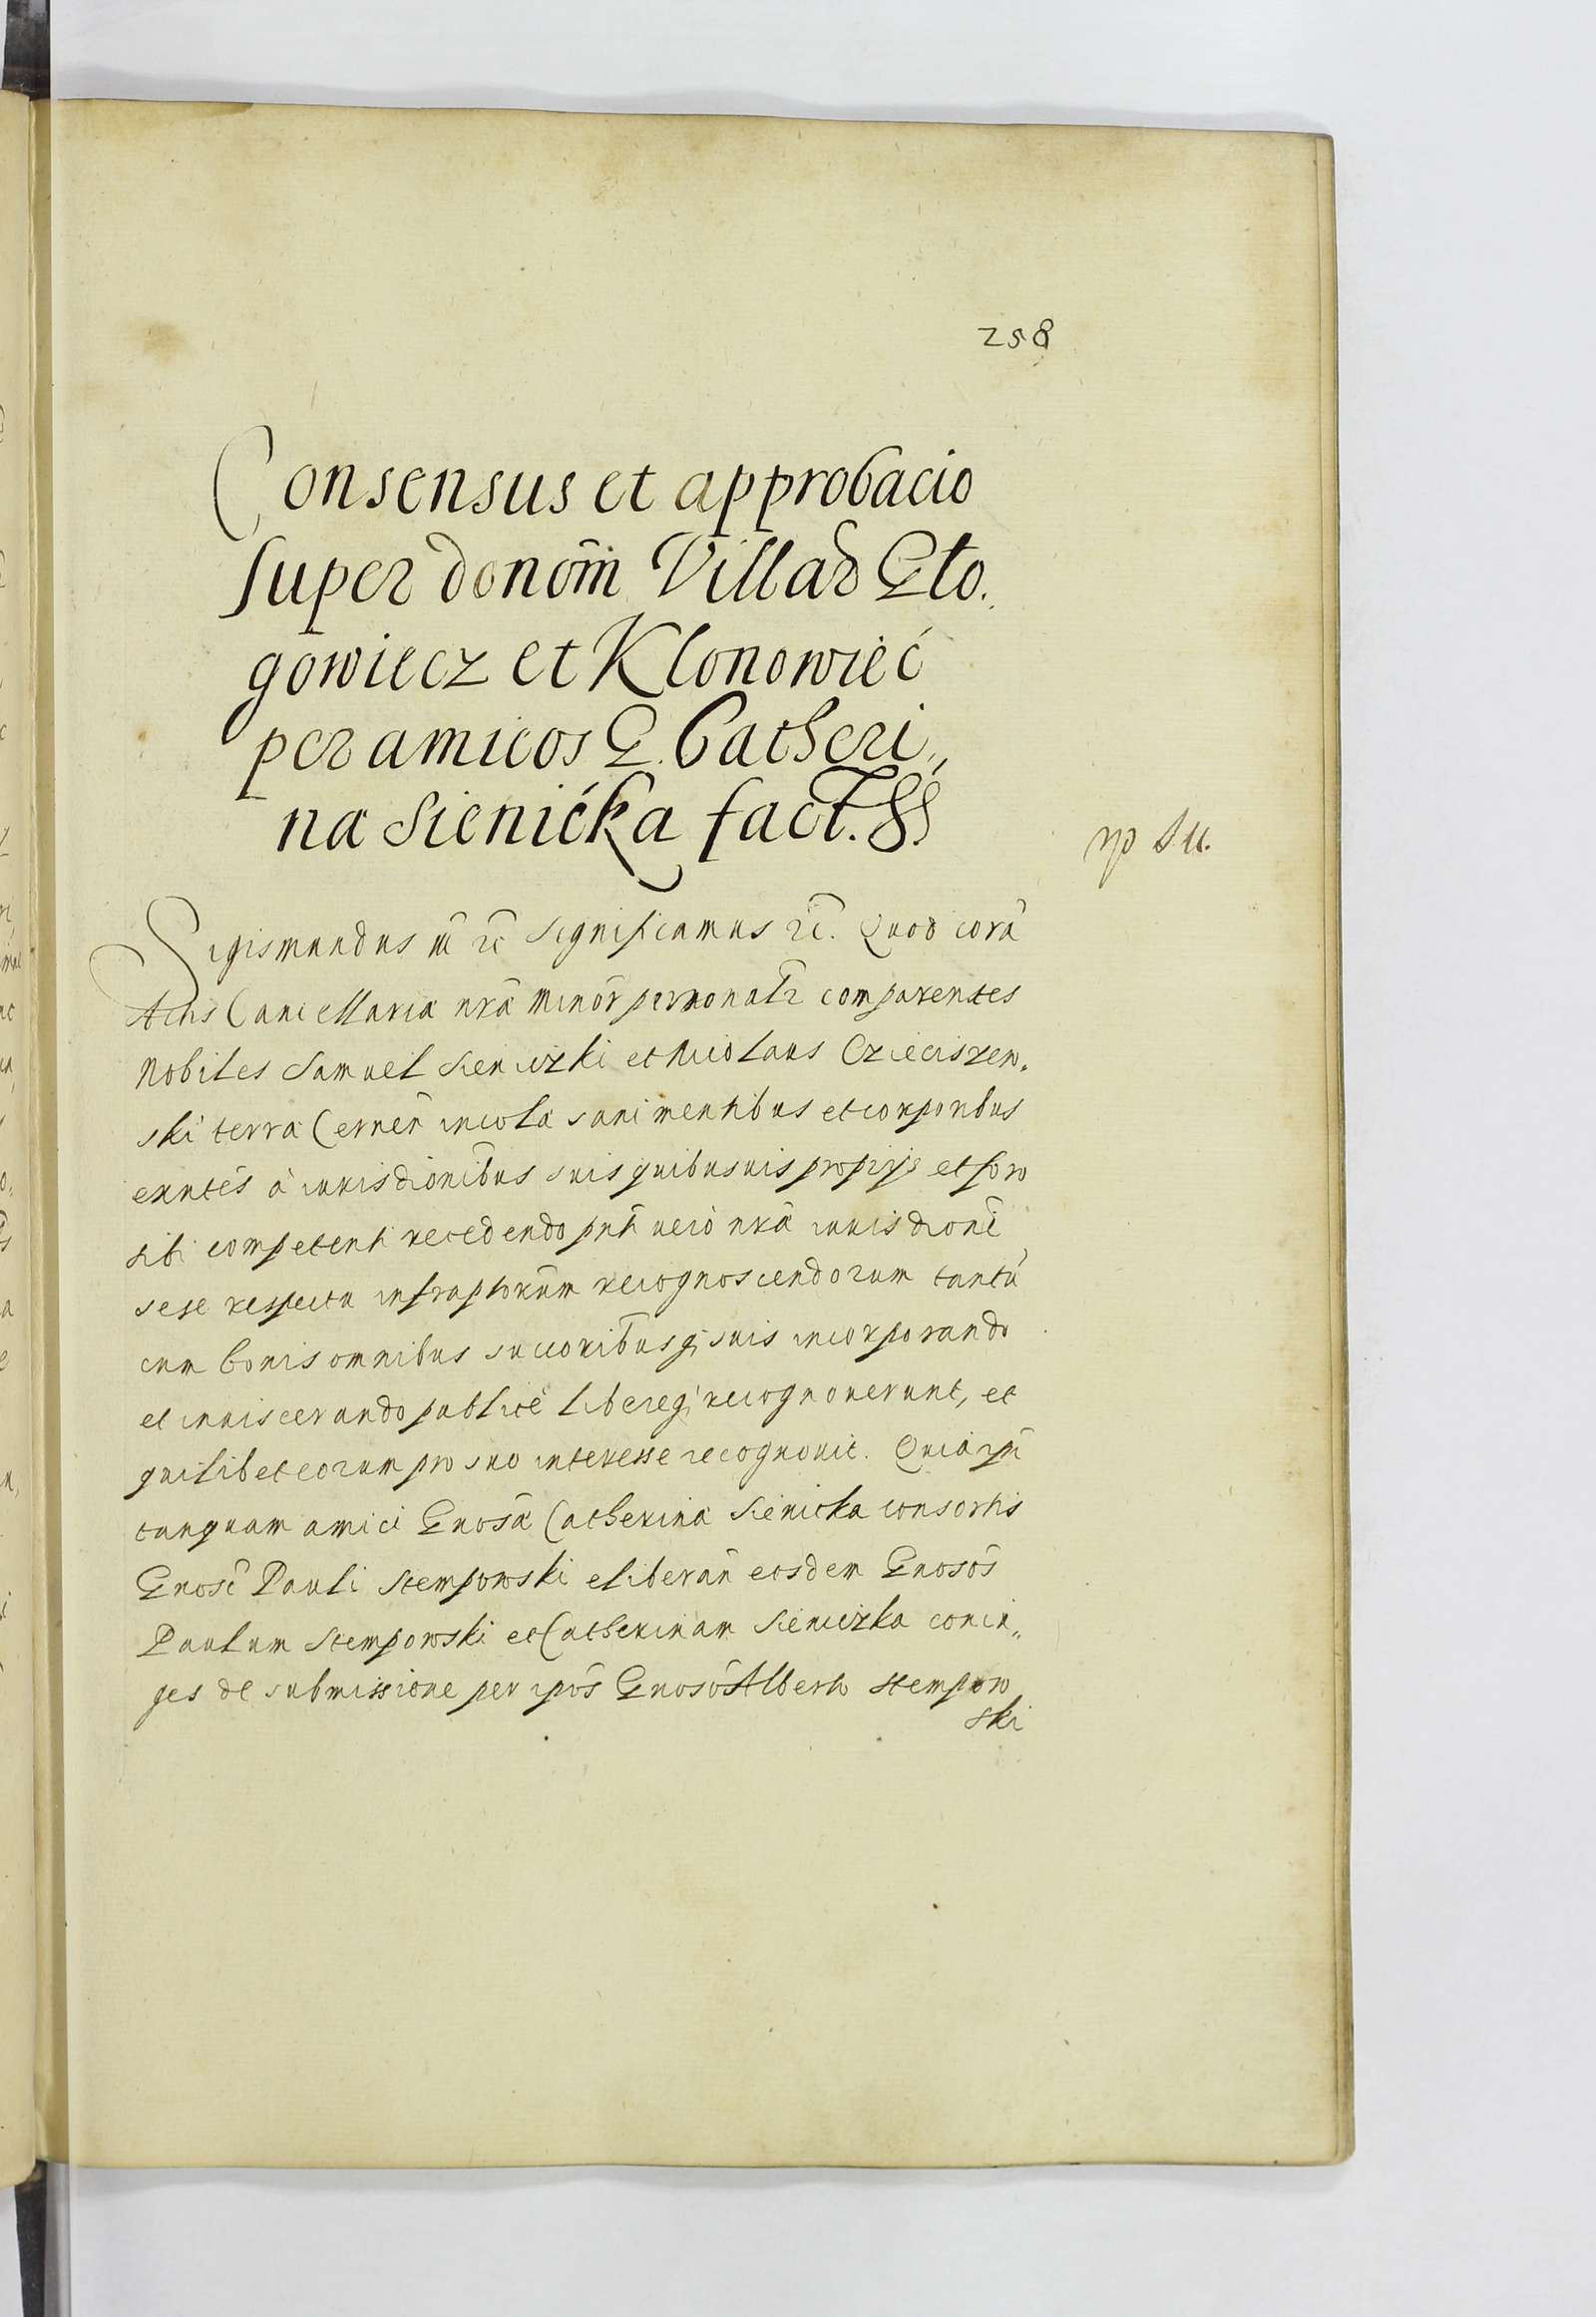 258
Consensus et approbacio
super donom̃ Villaꝝ Glo.
gowiecz et Klonowiec
per amicos G. Catheri„
na Sienicka fact.
Sigismundus III ꝛc Significamus ꝛc. Quod corã
Actis Cancellaria nrã minor̃ personalr̃ comparentes
Nobiles Samuel Sienizki et Nicolaus Czieciszew.
ski terra Cernen̄ incola sani mentibus et corporibus
exntẽs à iurisdionĩbus suis quibusuis proprijs et foro
sibi competenti recedendo pñti uerò nrã iurisdionĩ
sese respectu infraptorum̃ recognoscendorum tantũ
cum bonis omnibus succoribus̃q; suis incorporando
et inuiscerando publicè libereq; recognouerunt, et
quilibet eorum pro suo interesse recognouit. Quia ipsĩ
tanquam amici Gnosã Catherina Sienicka consortis
Gnosĩ Pauli Stempowski eliberan̄ eosdem Gnosõs
Paulum Stempowski et Catherinam Sienizka coniu„
ges de submissione per ipõs Gnosõ Alberto Stempow
ski